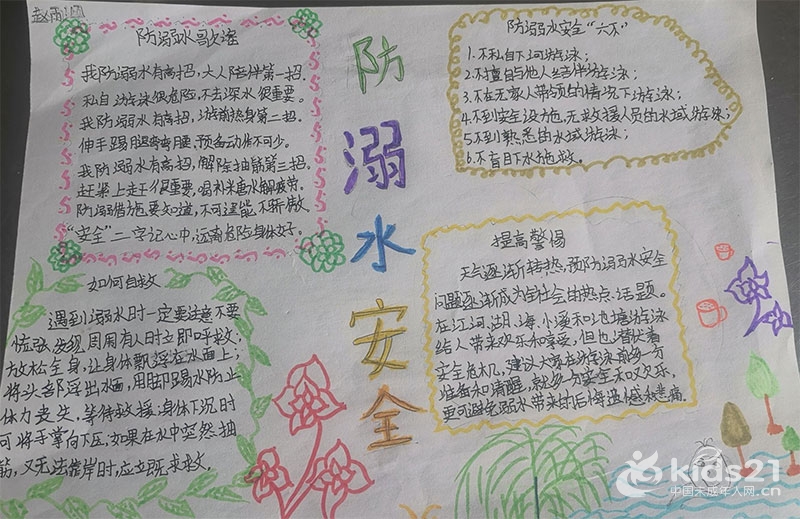 防溺水歌谣
我防溺水有高招,大人陪伴第一招.
私自游泳很危险,不去深水很重要。
我防溺水有高招,游前热身第二招.
伸手踢腿弯弯腰,预备动作不可少。
我防溺水有高招,解除抽筋第三招.
赶紧上岸很重要,喝补米唐水解疲劳.
防溺措施要知道,不可逞能不骄傲
“安全”二字记心中,远离危险身体好。
如何自救
遇到溺水时一定要注意不要
慌张,发现周围有人时立即呼救;
放松全身,让身体飘浮在水面上;
将头部浮出水面,用脚踢水防止
体力丧失,等待救援.身体下沉时
可将手掌向下压;如果在水中突然抽
筋,又无法靠岸时,应立既求救.
防
溺
水
安
全
防溺水安全“六不”
1.不私自下河游泳;
2.不擅自与他人结伴游泳;
3.不在无家人带领的情况下游泳;
4.不到安全设施,无救援人员的水域游泳;
5.不到熟悉的水域游泳;
6.不盲目下水施救。
提高警惕
天气逐渐转热,预防溺水安全
问题逐渐成为全社会的热点话题。
在江河、湖、海、小溪和池塘游泳
给人带来欢乐和享受,但也潜伏着
安全危机,建议大家在游泳前多一分
准备和清醒,就多一分安全和欢乐,
更可避免溺水带来的后悔遗憾和悲痛.
kids21
中国未成年人网.cn